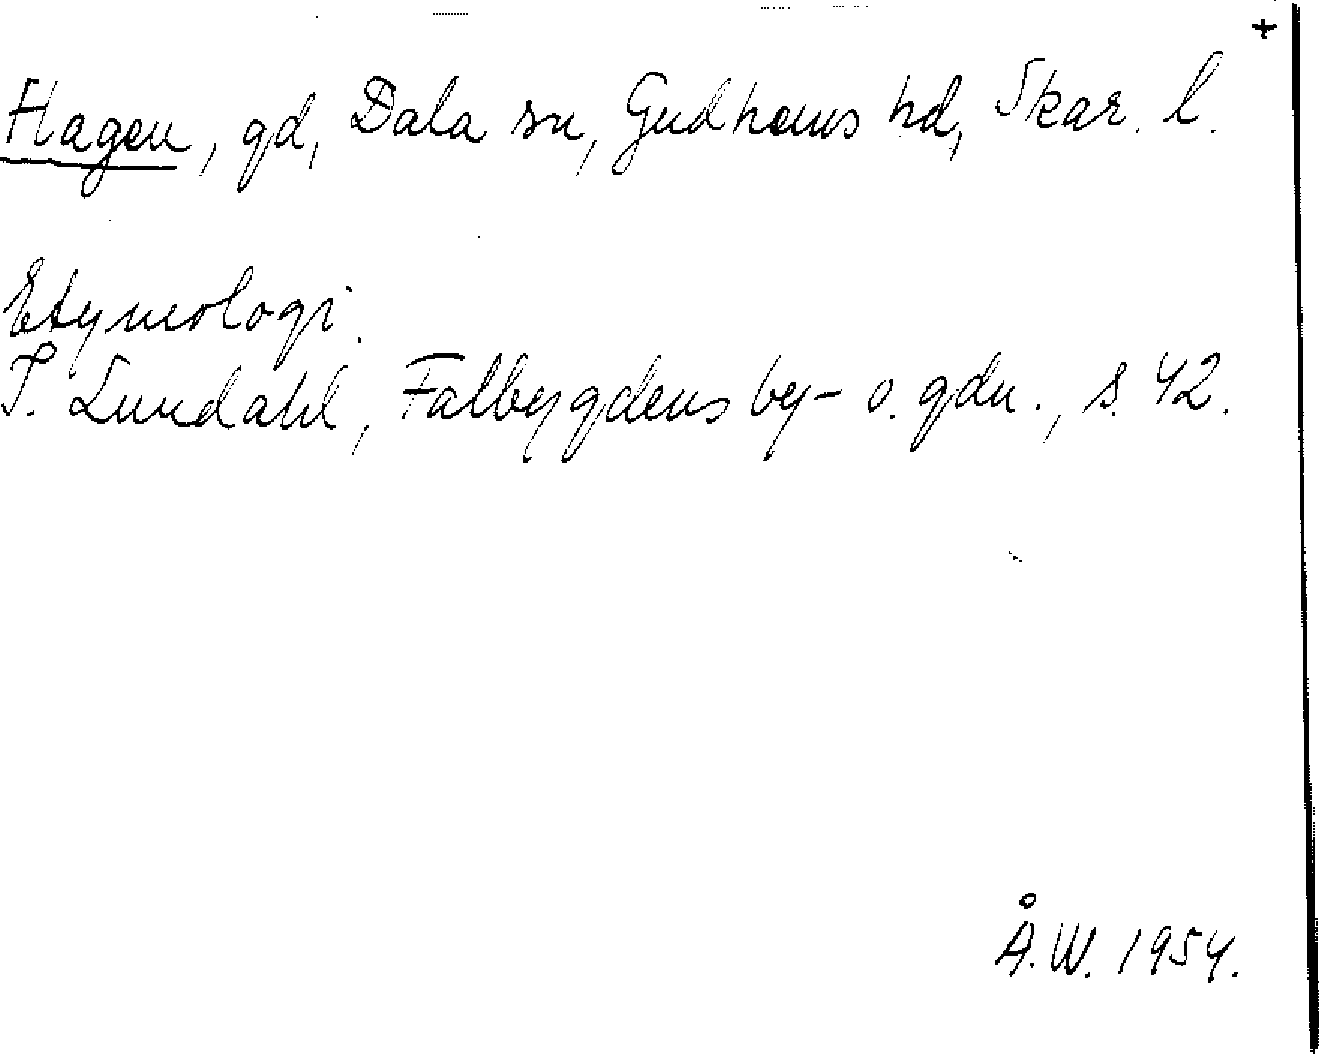 +
Hagen, gd, Dala sn, Gudhems hd, Skar. l.
Etymologi.
I. Lundahl, Falbygdens by- o. gdn., s. 42.
Å.W. 1954.